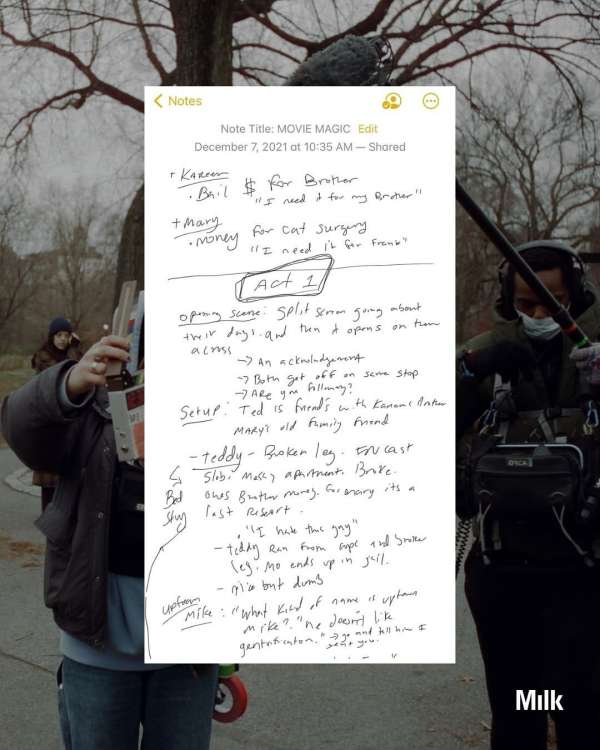 Notes
Note Title: MOVIE MAGIC Edit
December 7, 2021 at 10:35 AM — Shared
+ Kareem
• Bail $ for Brother
"I need it for my Brother"
+ Mary
• money for cat surgery
"I need it for Frank"
Act 1
opening scene: split screen going about
their days. and then it opens on them
across
→ An acknowledgement
→ Both get off on same stop
→ Are you following?
Setup: Ted is friends with Kareem's Brother
MARY's old family friend
- Teddy - Broken leg. IN CAST
Slob. Messy apartment. Broke.
owes Brother money. For mary its a
last resort.
Bed
Stuy
"I hate this guy"
- teddy ran from cops and broke
leg. Mo ends up in jail.
- nice but dumb
uptown
Mike: "What kind of name is uptown
Mike?" "He doesn't like
gentrification." → go and tell him I
sent you.
ORCA
Milk